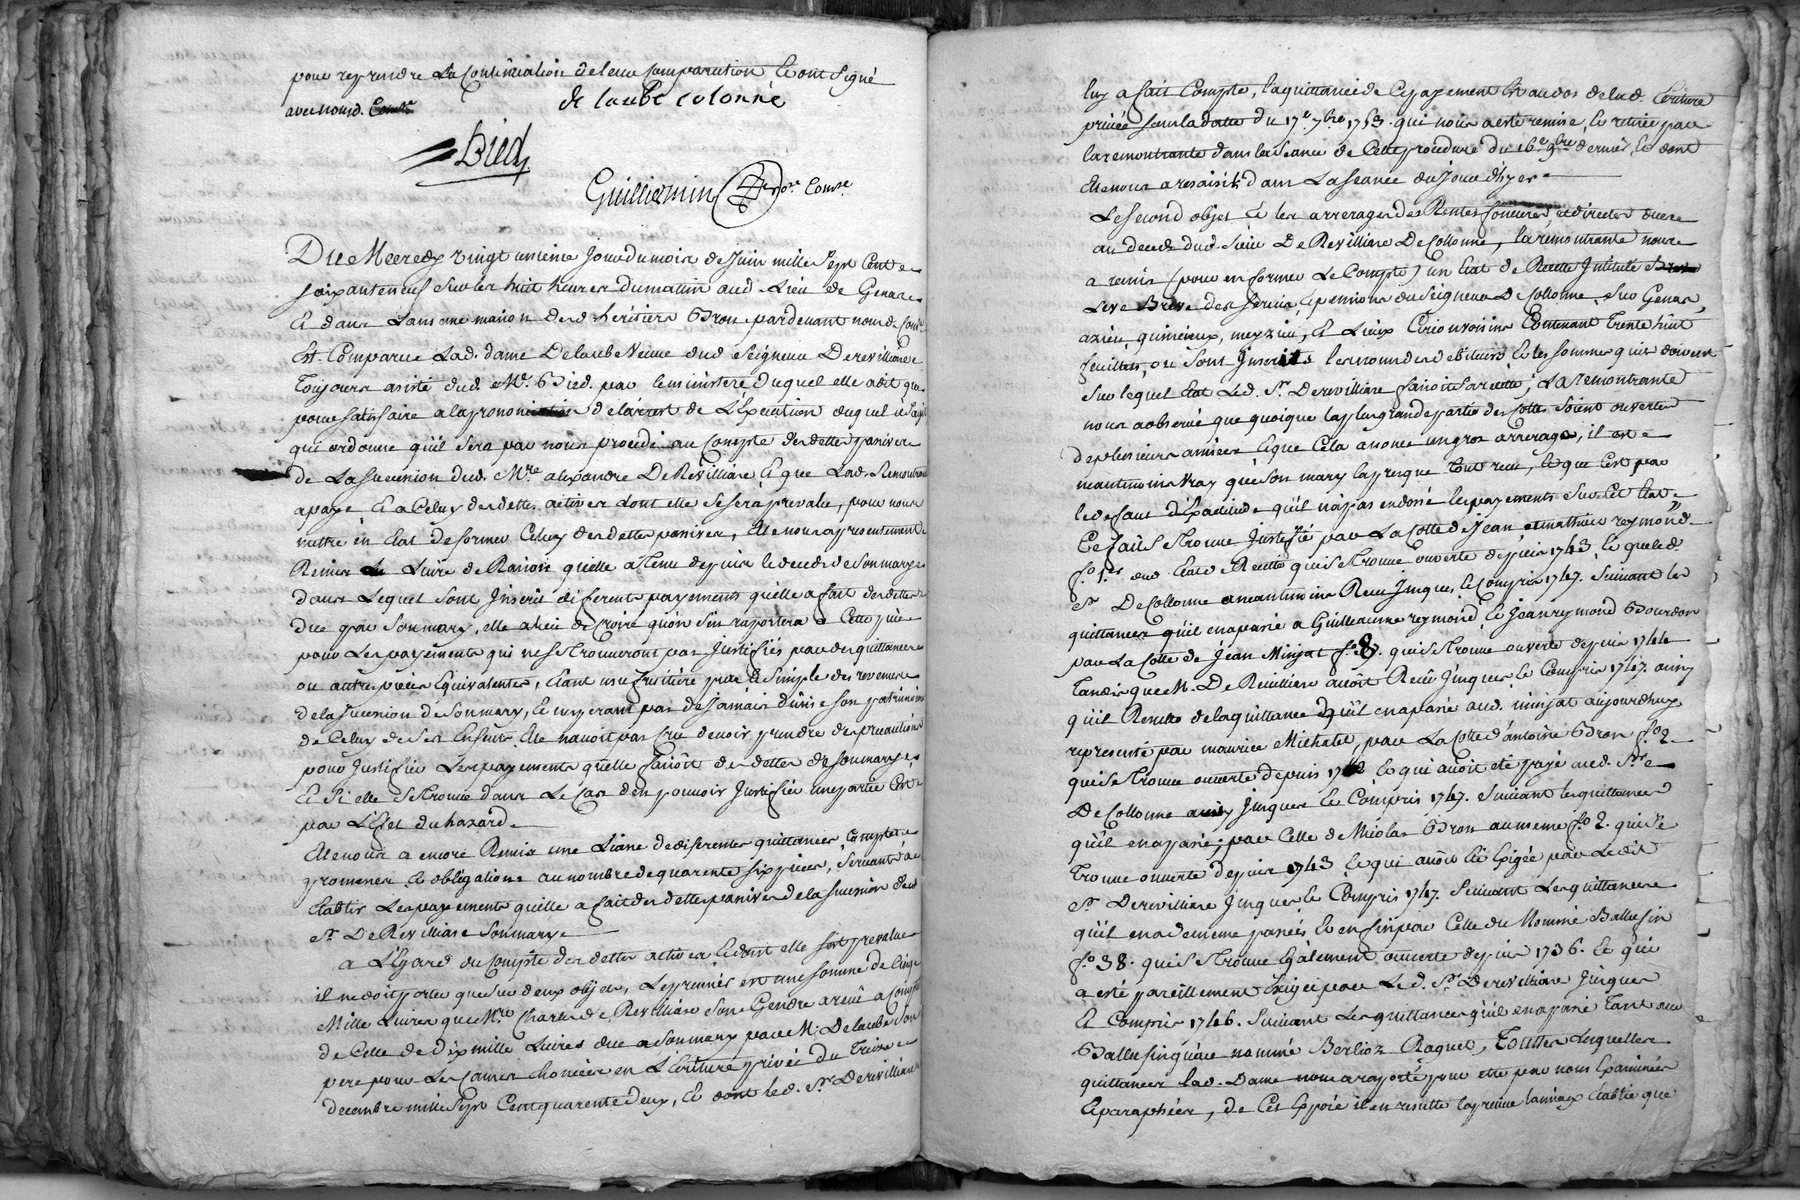 pour reprendre la Continuation de leur Comparution Et ont Signé
avec nousd. Comre
de laube colonne
Bied
Guilliermin Comre
Du Mecredy vingt unieme Jour du mois de Juin mille Sept Cent
soixante neuf Sur les huit heures du matin aud. Lieu de Genas
Et dans la meme maison desd. heritiers Bron pardevant nousd. Comre
Est Comparue Lad. dame Delaube Veuve dud Seigneur De revilliase
Toujours asisté dud. Me. Bied. par le ministere duquel elle a dit que
pour satisfaire a la prononciation de l'arrest de L'Execution duquel il s'agit
qui ordonne qu'il sera par nous procédé au Compte des dettes passives
de La sucession dud. Mre alexandre De Revilliase Et que Lad. Remontrante
a payé Et a Celuy des dettes actives dont elle se sera prevalue, pour nous
mettre en Etat de former Celuy des dettes passives, Elle nous a presentement
Remis Livre de Raison quelle a Tenu depuis le decès de son mary
dans Lequel sont Inscrit diferents payements quelle a fait des dettes
due par Son mary, elle a lieu de Croire qu'on s'en raportera a Cette piece
pour Les payements qui ne se trouveront pas Justifiés par des quittances
ou autres pieces Equivalentes, Etant usufruitiere pure Et Simple des revenus
de la sucession de Son mary, Et n'esperant pas de Jamais d'unir son patrimoine
de Celuy de Ses Enfants Elle n'avoit pas Cru devoir prendre des precautions
pour Justifier Les payements quelle faisoit des dettes de Son mary
Et Si elle Se trouve dans Le Cas d'en pouvoir Justifier une partie C'est
par L'Efet du hazard.
Elle nous a encore Remis une Liasse de diferentes quittances, Comptes
promesses Et obligations au nombre de quarente Six pieces, Servant a
Etablir Les payements quelle a fait des dettes passives de la sucession dud
Sr. De Revilliase Son mary
a L'Egard du Compte des dettes actives Et dont elle s'est prevalue
il ne doit porter que Sur deux objets, Le premier est une somme de Cinq
Mille Livres que Mre Charles de Revilliase Son Gendre a reçu a Compte
de Celle de Dix mille Livres due a Son mary par M. Delaube Son
pere pour Les Causes Enoncées en L'Ecriture privée du Treize
decembre mille Sept Cent quarente deux, Et dont led. Sr. De revilliase
luy a fait Compte, la quittance de Ce payement Est au dos de lad. Ecriture
privée sous la datte du 17e 7bre 1753. qui nous a esté remise, Et retirée par
la remontrante dans la Seance de Cette procedure du 16e 9bre dernier, Et dont
Elle nous a resaisit dans La Seance du Jour d'hyer
Le Second objet Est les arrerages des Rentes foncieres, et directes dues
au decès dud. Sieur De Revilliase De Collonne, la remontrante nous
a remis (pour en former Le Compte) un Etat de Recette Intitulé
Leve Breve des Servis, Et pensions du Seigneur De Collonne, Sur Genas,
azieu, quincieux, meyzieu, Et Lieux Circonvoisins Contenant Trente huit
feuillets, ou Sont Inscrits les noms des debiteurs Et les Sommes qu'ils doivent
Sur lequel Etat Led. Sr. Derevilliase faisoit Sa recette; La remontrante
nous a observé que quoique la plus grande partie des Cottes Soient ouvertes
de plusieurs années Et que Cela anonce un gros arrerage, il est
neantmoins Vray que Son mary la presque Tout reçu, Et que C'est par
le defaut d'Exactitude qu'il n'a pas endossé les payements Sur Cet Etat
Ce fait Se trouve Justifié par La Cotte de Jean et mathieu reymond
fo. 1er dud Etat de Recette qui Se trouve ouverte depuis 1743, Et que led.
Sr De Collonne a neantmoins Reçu Jusques, Et Compris 1747. Suivant les
quittances qu'il en a passé a Guilleaume reymond, Et Jean reymond Bourdon
par La Cotte de Jean Minjat fo. 8. qui Se trouve ouverte depuis 1744
Tandis que M. De Revilliase avoit Reçu Jusques, Et Compris 1747. ainsy
qu'il Resulte de la quittance qu'il en a passé aud. minjat aujourdhuy
representé par maurice Michalet, par La Cotte d'antoine Bron fo. 2
qui Se trouve ouverte depuis 1742 Et qui avoit eté payé aud. Sr.
De Collonne Jusques Et Compris 1747. Suivant les quittances
qu'il en a passé; par Celle de Nicolas Bron au meme fo. 2. qui Se
Trouve ouverte depuis 1743 Et qui avoit Eté Exigée par Ledit
Sr Derevilliase Jusques, Et Compris 1747. Suivant Les quittances
qu'il en a de meme passées Et enfin par Celle du Nommé Ballefin
fo. 38. qui Se trouve Egalement ouverte depuis 1736. Et qui
a esté pareillement Exigée par Led. Sr. Derevilliase Jusques
Et Compris 1746. Suivant Les quittances qu'il en a passé Tant au
Ballefin qu'au nommé Berlioz Raquet, Toutes Lesquelles
quittances lad. Dame nous a raporté pour etre par nous Examinées
Et paraphées, de Cet Exposé il en resulte la preuve la mieux Etablie que